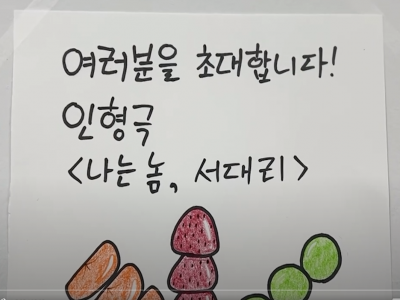 여러분을 초대합니다!
인형극
<나는 놈, 서대리>